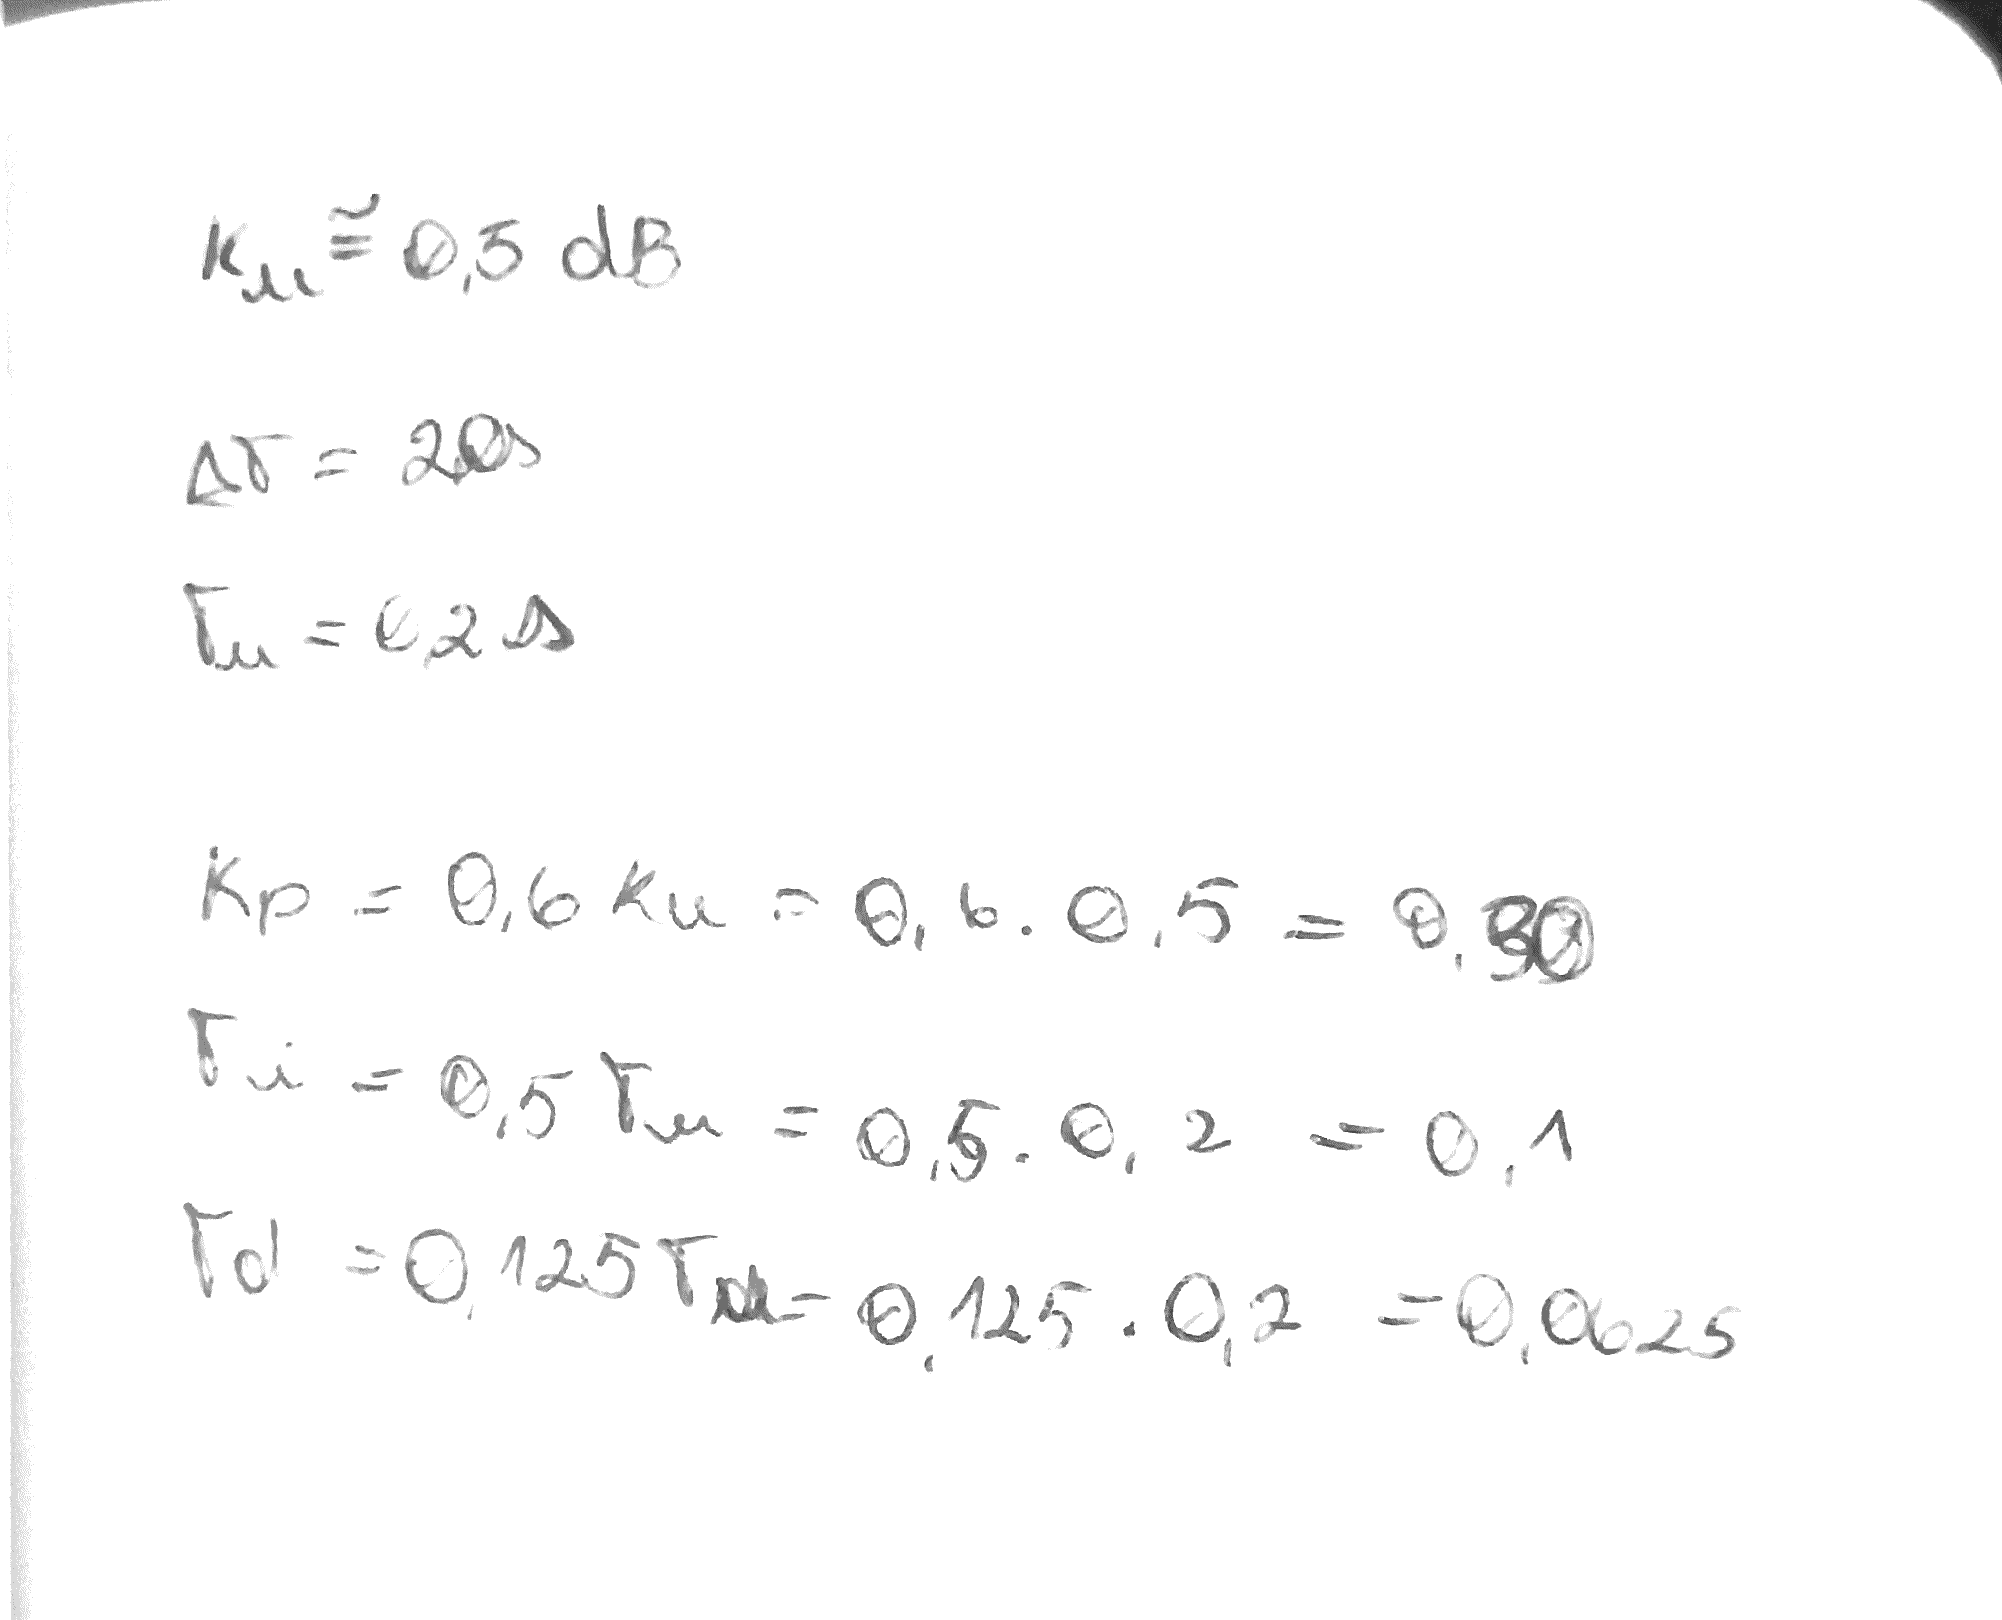 Ku ≅ 0,5 dB
ΔT = 2,0s
Tu = 0,2 s
Kp = 0,6 Ku = 0,6 . 0,5 = 0,30
Ti = 0,5 Tu = 0,5 . 0,2 = 0,1
Td = 0,125 Tu = 0,125 . 0,2 = 0,0625